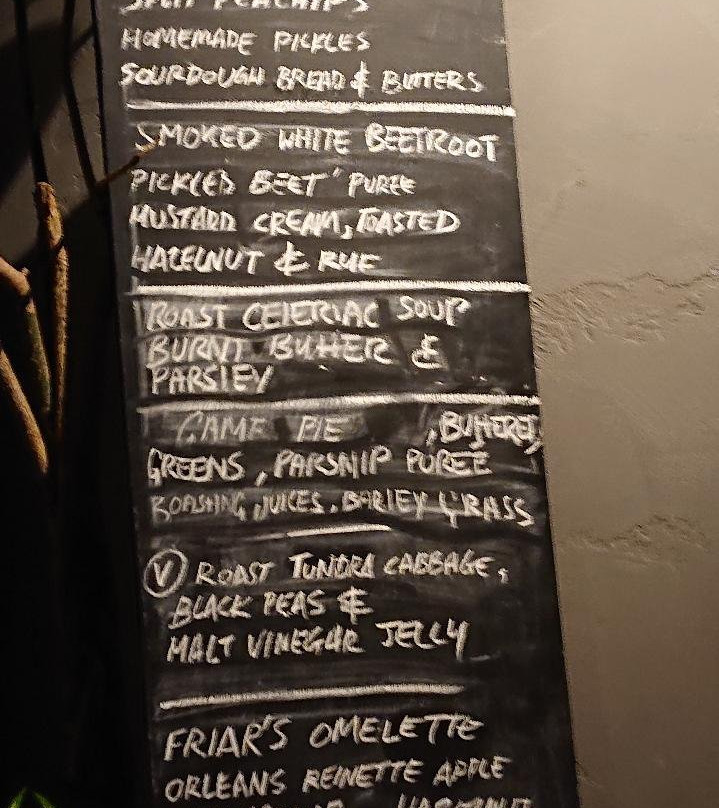 SPLIT PEA CHIPS
HOMEMADE PICKLES
SOURDOUGH BREAD & BUTTERS
SMOKED WHITE BEETROOT
PICKLED BEET' PUREE
MUSTARD CREAM, TOASTED
HAZELNUT & RUE
ROAST CELERIAC SOUP
BURNT BUTTER &
PARSLEY
GAME PIE , BUTTERED
GREENS, PARSNIP PUREE
ROASTING JUICES, BARLEY GRASS
V ROAST TUNDRA CABBAGE,
BLACK PEAS &
MALT VINEGAR JELLY
FRIAR'S OMELETTE
ORLEANS REINETTE APPLE